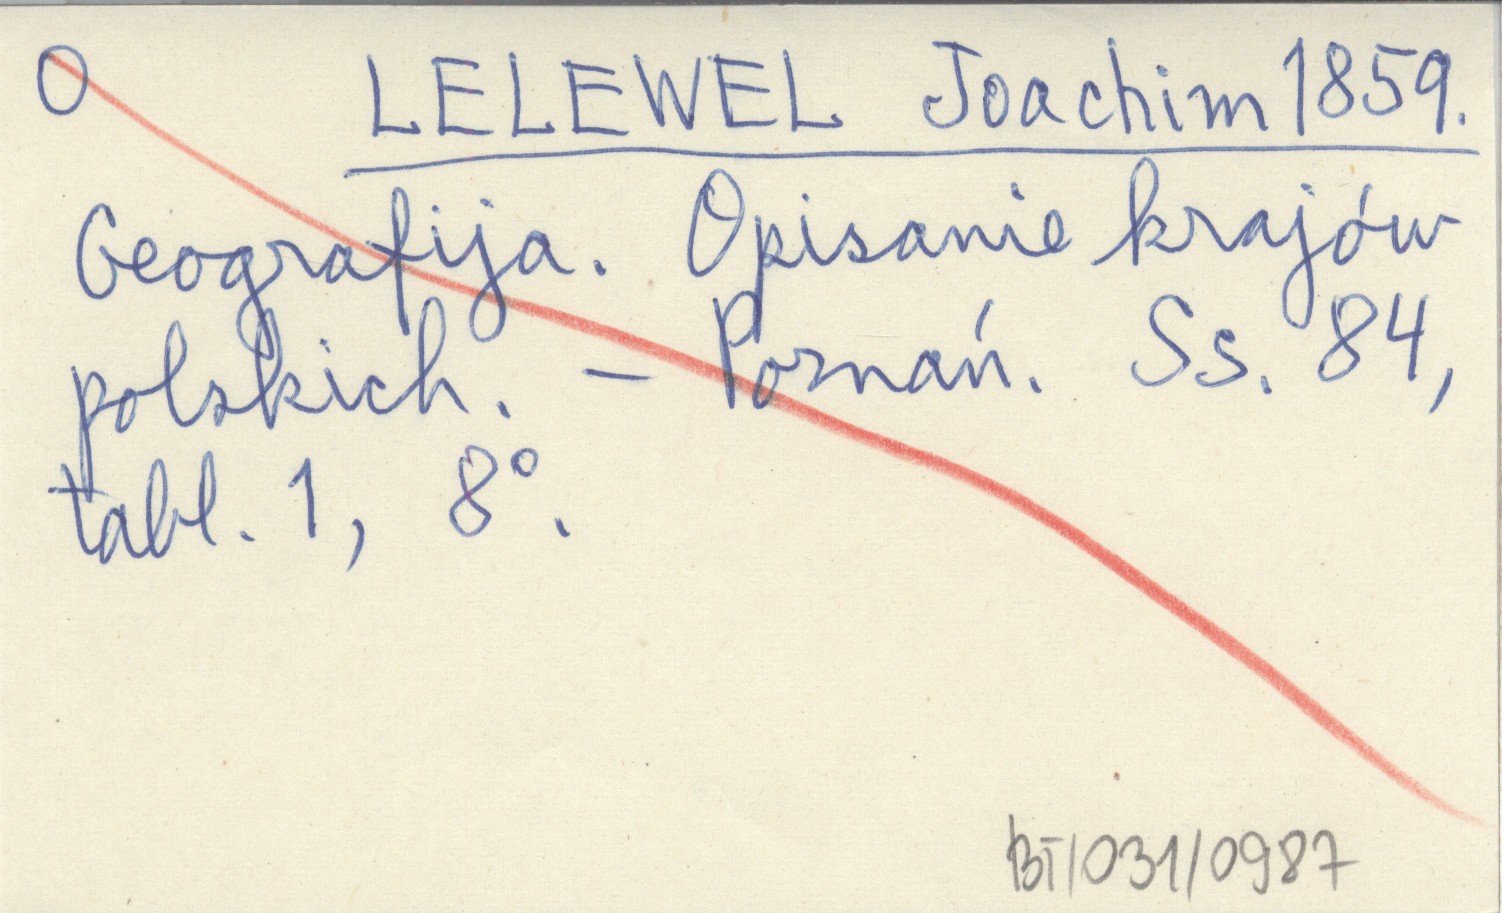 O LELEWEL Joachim 1859.
Geografija. Opisanie krajów
polskich. – Poznań. Ss. 84,
tabl. 1, 8°.
BT/031/0987